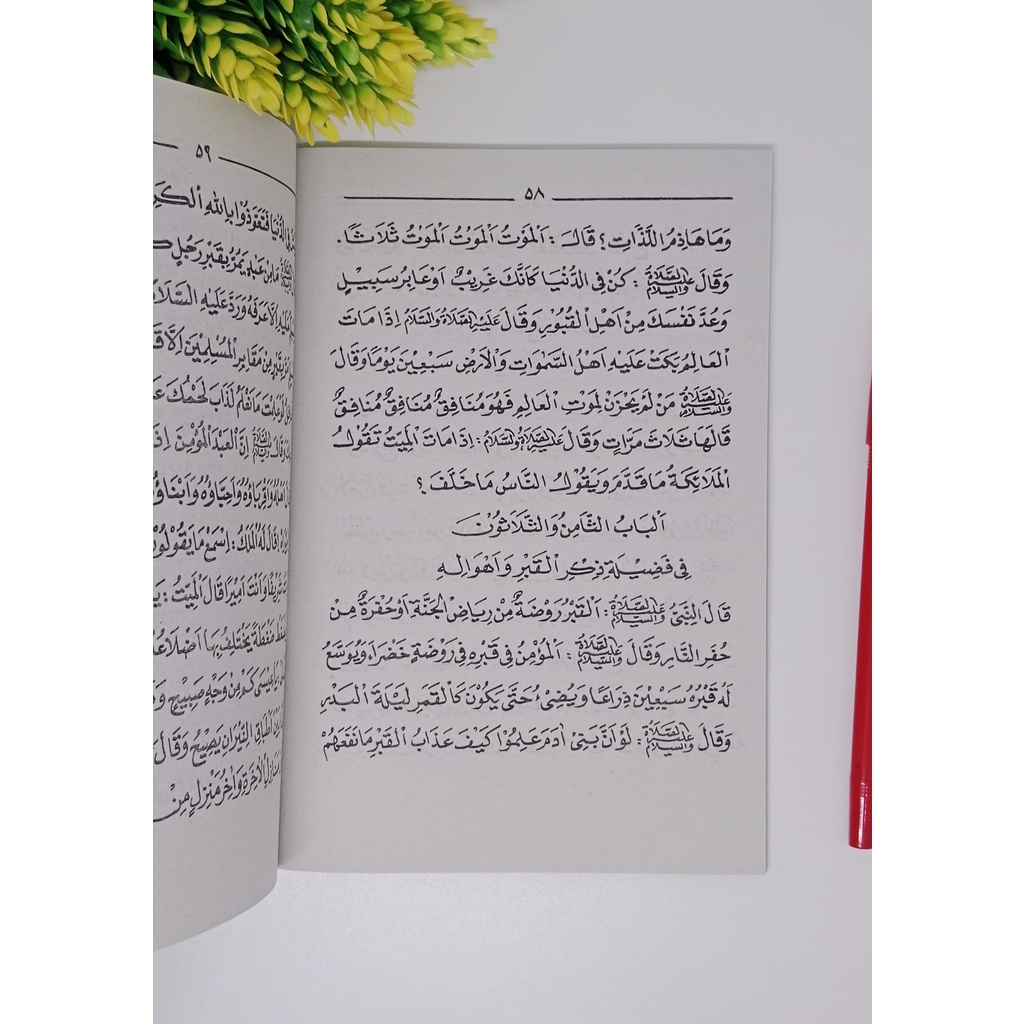 ٥٨
وَمَا هَاذِمُ اللَّذَّاتِ؟ قَالَ: اَلْمَوْتُ اَلْمَوْتُ اَلْمَوْتُ ثَلَاثًا.
وَقَالَ عَلَيْهِ الصَّلَاةُ وَالسَّلَامُ: كُنْ فِي الدُّنْيَا كَأَنَّكَ غَرِيْبٌ اَوْعَابِرُ سَبِيْلٍ
وَعُدَّ نَفْسَكَ مِنْ اَهْلِ الْقُبُوْرِ وَقَالَ عَلَيْهِ الصَّلَاةُ وَالسَّلَامُ اِذَا مَاتَ
الْعَالِمُ بَكَتْ عَلَيْهِ اَهْلُ السَّمٰوَاتِ وَالْاَرْضِ سَبْعِيْنَ يَوْمًا وَقَالَ
عَلَيْهِ الصَّلَاةُ وَالسَّلَامُ مَنْ لَمْ يَحْزَنْ لِمَوْتِ الْعَالِمِ فَهُوَ مُنَافِقٌ مُنَافِقٌ مُنَافِقٌ
قَالَهَا ثَلَاثَ مَرَّاتٍ وَقَالَ عَلَيْهِ الصَّلَاةُ وَالسَّلَامُ: اِذَا مَاتَ الْمَيِّتُ تَقُوْلُ
الْمَلَائِكَةُ مَا قَدَّمَ وَيَقُوْلُ النَّاسُ مَا خَلَّفَ؟
اَلْبَابُ الثَّامِنُ وَالثَّلَاثُوْنَ
فِي فَضِيْلَةِ ذِكْرِ الْقَبْرِ وَاَهْوَالِهِ
قَالَ النَّبِيُّ عَلَيْهِ الصَّلَاةُ وَالسَّلَامُ: اَلْقَبْرُ رَوْضَةٌ مِنْ رِيَاضِ الْجَنَّةِ اَوْحُفْرَةٌ مِنْ
حُفَرِ النَّارِ وَقَالَ عَلَيْهِ الصَّلَاةُ وَالسَّلَامُ: اَلْمُؤْمِنُ فِي قَبْرِهِ فِي رَوْضَةٍ خَضْرَاءَ وَيُوَسَّعُ
لَهُ قَبْرُهُ سَبْعِيْنَ ذِرَاعًا وَيُضِيْءُ حَتَّى يَكُوْنَ كَالْقَمَرِ لَيْلَةَ الْبَدْرِ
وَقَالَ عَلَيْهِ الصَّلَاةُ وَالسَّلَامُ: لَوْ اَنَّ بَنِيْ اٰدَمَ عَلِمُوْا كَيْفَ عَذَابُ الْقَبْرِ مَا نَفَعَهُمْ
٥٩
الدُّنْيَا فَتَعَوَّذُوْا بِاللهِ الْكَرِ
مَا مِنْ عَبْدٍ يَمُرُّ بِقَبْرِ رَجُلٍ
عَلَيْهِ اِلَّا عَرَفَهُ وَرَدَّ عَلَيْهِ السَّلَا
بِقَبْرٍ مِنْ مَقَابِرِ الْمُسْلِمِيْنَ اِلَّا قَ
مَا نَعْلَمُ لَذَابَ لَحْمُكَ عَ
وَقَالَ عَلَيْهِ الصَّلَاةُ وَالسَّلَامُ اِنَّ الْعَبْدَ الْمُؤْمِنَ اِذَ
وَاَقْرِبَاؤُهُ وَاَحِبَّاؤُهُ وَاَبْنَاؤُ
قَالَ لَهُ الْمَلَكُ: اِسْمَعْ مَا يَقُوْلُوْ
وَاَنْتَ اَمِيْرًا قَالَ الْمَيِّتُ: يَ
ضَغْطَةً يَخْتَلِفُ بِهَا اَضْلَاعُ
يَا عِيْسَى كَمْ مِنْ وَجْهٍ صَبِيْحٍ وَ
اَطْبَاقِ النِّيْرَانِ يَصِيْحُ وَقَالَ
الْاٰخِرَةِ وَاٰخِرُ مَنْزِلٍ مِنْ